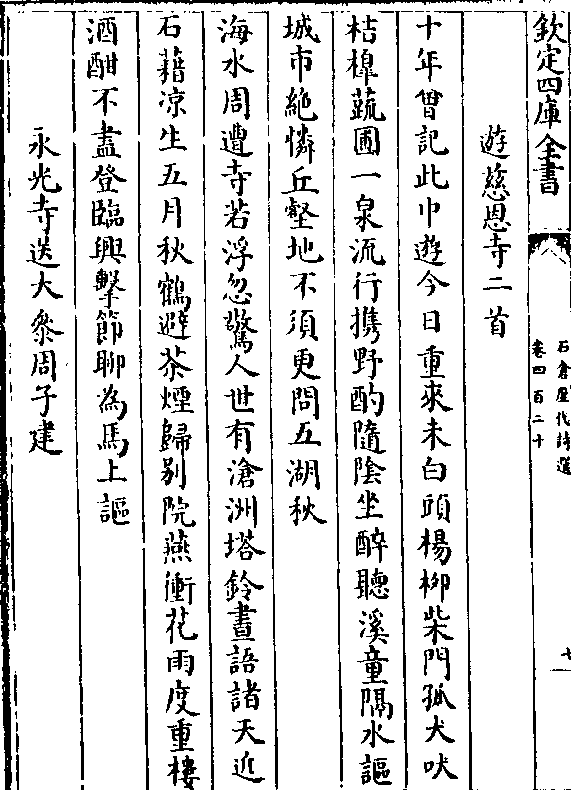 欽定四庫全書
石倉歷代詩選
卷四百二十
七
遊慈恩寺二首
十年曾記此中遊今日重來未白頭楊柳柴門孤犬吠
桔橰蔬圃一泉流行携野酌隨陰坐醉聽溪童隔水謳
城市絶憐丘壑地不須更問五湖秋
海水周遭寺若浮忽驚人世有滄洲塔鈴晝語諸天近
石藉凉生五月秋鶴避茶煙歸别院燕衝花雨度重樓
酒酣不盡登臨興擊節聊為馬上謳
永光寺送大叅周子建